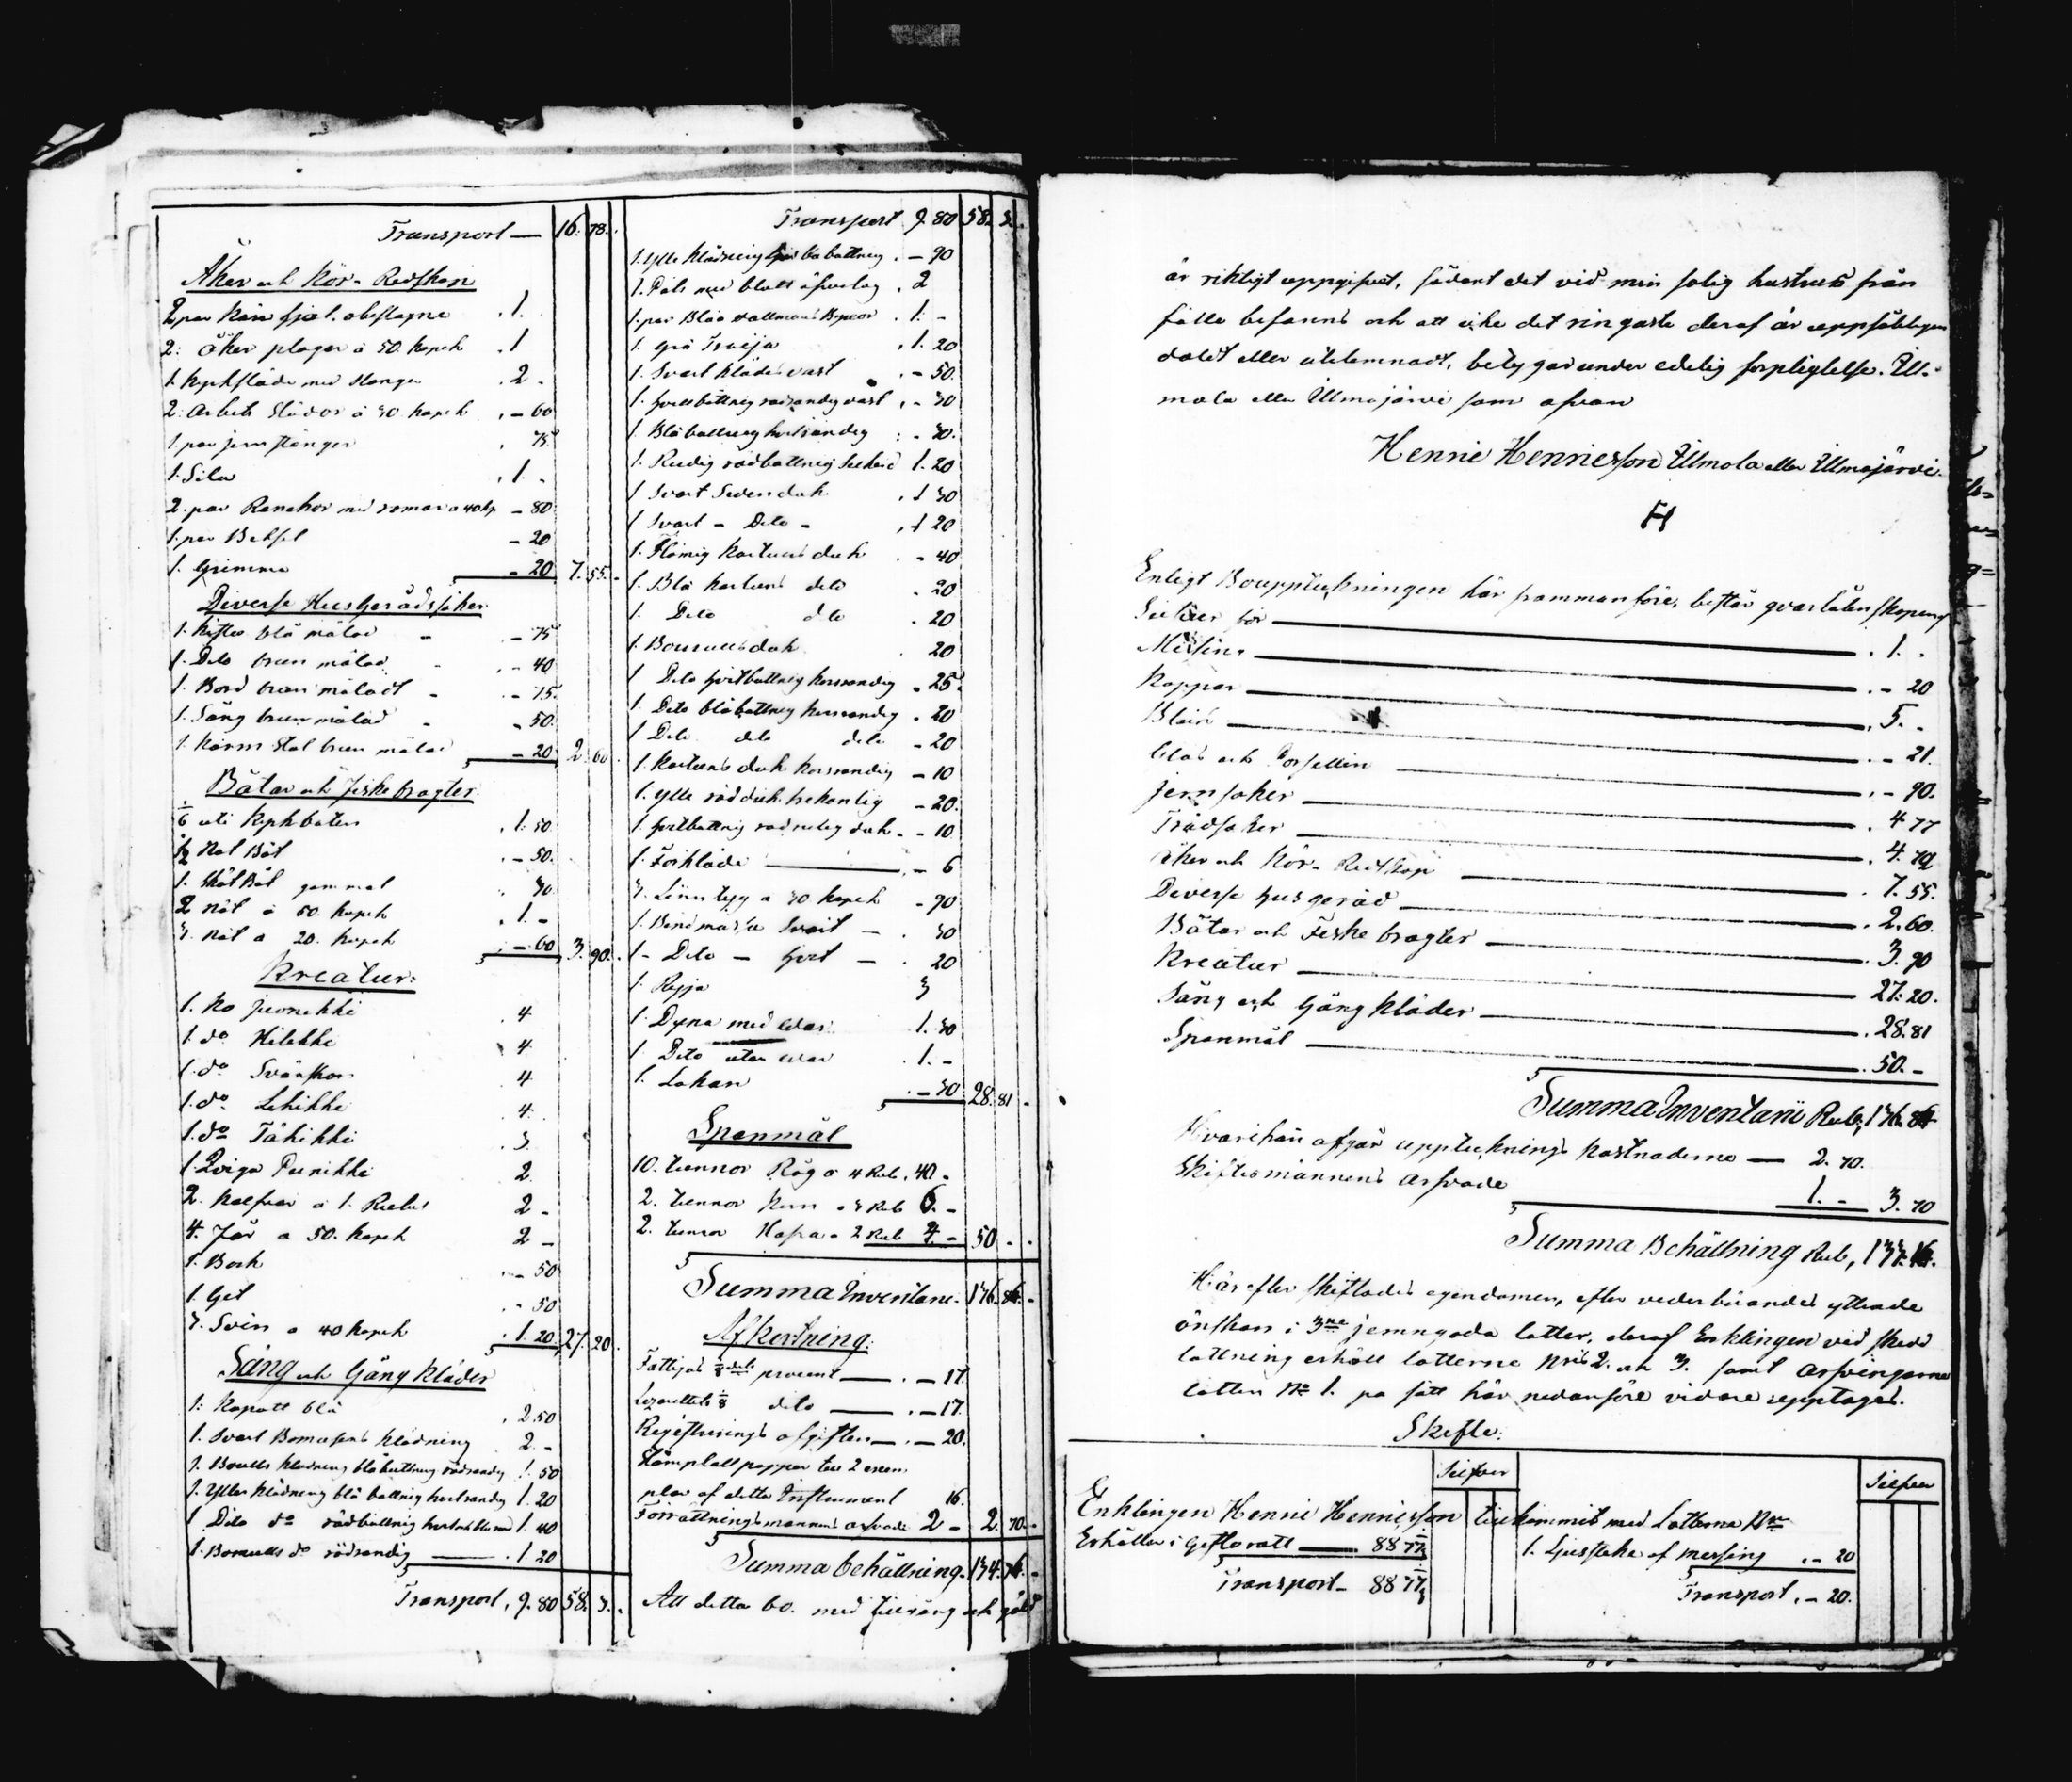 Transport — 16. 78.
Åker och Kör-Redskap
2 par Kärr hjul obeslagne . 1.
2: åker plogar à 50. Kopek . 1
1. Kyrksläde med stänger . 2 -
2: Arbets Slädor à 30 Kopek . – 60
1. par jern stänger . 75
1. Sila . 1. -
2. par Rankor med remar a 40 kp – 80
1. par Betsel – 20
1. Grimma – 20 7. 55. -
Diverse Husgerådssaker
1. Kista blå målad – – 75
1. Dito brun målad . – 40
1. Bord brun måladt – . – 75.
1. Säng brun målad – – 50.
1. Karm Stol brun målad – 20 2. 60.
Båtar och fiskebragter.
1/6 uti Kyrkbåten . 1. 50.
1/2 Not Båt . – 50.
1. Sköt Båt gammal . 30
2 Nät à 50. Kopek . 1. –
3. Nät a 20. Kopek . – 60 3. 90.
Kreatur:
1. Ko Juonikki . 4
1. do Hilikki 4
1. do Svänskar . 4
1. do Lehikki . 4.
1. do Tähikki . 3.
1. Qviga Punikki 2.
2. Kalfvar a 1. Rubel 2 -
4. Får a 50. Kopek 2 –
1. Bock . – 50
1. Get . – 50
3. Svin a 40 kopek . 1. 20. 27. 20.
Säng och Gång Kläder
1. Kapott blå . 2 50
1. Svart Bomasens Klädning . 2. –
1. Bomulls Klädning blåbottnig rödrandig 1. 50
1. Ylle Klädning blå bottnig korsrandig 1. 20
1 Dito do rödbottnig 1. 40
1. Bomulls do rödrandig — . 1 20
Transport . 9. 80 58. 3.
Transport 9 80 58. 3.
1. Ylle Klädning bottnig . – 90
1. Päls med blått öfverdrag . 2
1. par Blåa vallmans Byxor . 1. –
1. Grå Tröija . 1. 20
1. Svart Klädes väst . – 50.
1. hvitbottnig rödrandig väst . – 30
1. Blåbottnig korsrandig . – 30.
1. Rudig rödbottnig 1. 20
1 Svart Sidenduk . 1 30
1 Svart – Dito – . 1 20
1. Flämig Kartuns duk . – 40
1. Blå Kartuns dito . 20
1. Dito dto . 20
1. Bomullsduk 20
1 Dito hvitbottnig korsrandig . 25.
1. Dito blåbottnig korsrandig . 20
1 Dito dito dito – 20
1. Kartuns duk korsrandig – 10
1. Ylle röd duk trekantig – 20.
1. hvitbottnig duk . – 10
1. Förkläde — . – 6
3. Linn tyg a 30 kopek – 90
1. Bindmössa Svart – . 30
1 – Dito – hvit – . 20
1. Ryja 3
1. Dyna med war . 1. 30
1. Dito utan war . 1. –
1. Lakan . – 30 28. 81 -
Spanmål
10. tunnor Råg a 4 Rub. . 40. -
2. tunnor Korn a 3 Rub 6. –
2. tunnor Hafra a 2 Rub 4. – 50 - .
Summa Inventarii. 136. 84. -
Afkortning:
Fattigas 1/8 dels procent — . – 17.
Lazarettets 1/8 dito — . – 17.
Registrerings afgiften — . – 20.
Stämplatt papper till 2 exem
plar af detta Instrument 16.
Förrättningsmannens arfvode 2 – 2. 70. -
Summa behållning. 134. 14. -
Att detta bo. med tillgång och gäld
är riktigt uppgifvet, sådant det vid min salig hustrus från
fälle befanns och att icke det ringaste deraf är uppsåtligen
doldt eller utelemnadt, betygar under edelig förpligtelse. Ill-
mola eller Illmajärvi som ofvan
Henric Henricsson Illmola eller Illmajärvi
H
Enligt Boupptekningen här framanföre, består qvarlåtenskapen
Silfver för — . 1. .
Messing — . – 20
Koppar — . 5. -
Bleck — . – 21.
Glas och Porsellin — . – 90.
Jernsaker — . 4 77
Trädsaker — . 4. 70
Åker och Kör-Redskap — . 7. 55.
Diverse husgeråd — . 2. 60.
Båtar och Fiske bragter — . 3. 90
Kreatur — 27. 20.
Säng och Gång kläder — . 28. 81
Spanmål — . 50. –
Summa Inventarii Rub, 136. 84
Hvarifrån afgår upptekningskostnaderne — 2. 70.
Skiftesmännens arfvode 1. – 3. 70
Summa Behållning Rub, 133. 14.
Härefter skiftades egendomen, efter vederbörandes yttrade
önskan i 3ne jemngoda lotter, deraf Enklingen vid skedd
lottning erhöll lotterne Nris 2. och 3. samt arfvingarne
lotten No 1. på sätt här nedanföre vidare upptages.
Skifte:
Silfver
Silfver
Enklingen Henric Henricsson
Erhåller i Giftorätt — 88 77
Transport – 88 77
tillkommit med Lotterna Nris
1. Ljusstake af messing . – 20
Transport . – 20.